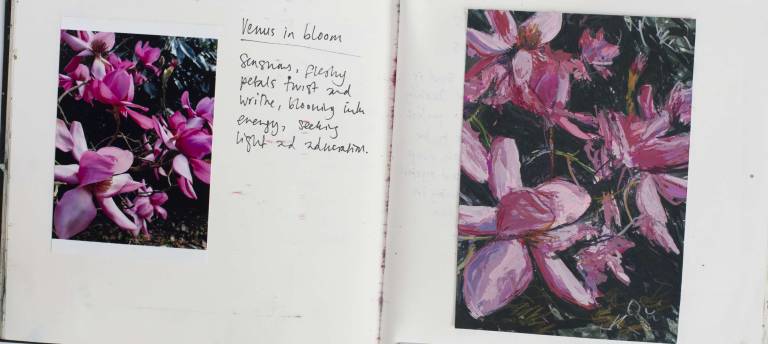 Venus in bloom
Sensuous, fleshy
petals twist and
writhe, blooming with
energy, seeking
light and adoration.